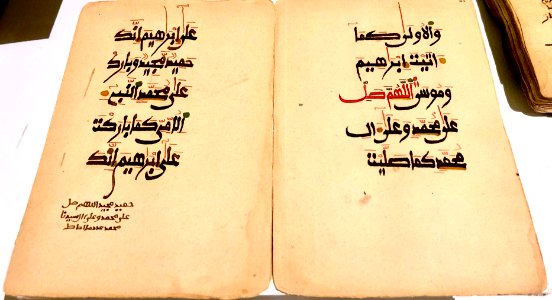 والاولى كما
اتيت ابرهيم
وموسى اللهم صل
على محمد وعلى ال
محمد كما صليت
على ابرهيم انك
حميد مجيد وبارك
على محمد النبي
الامي كما باركت
على ابرهيم انك
حميد مجيد اللهم صل
على محمد وعلى ال سيدنا
محمد عدد ما